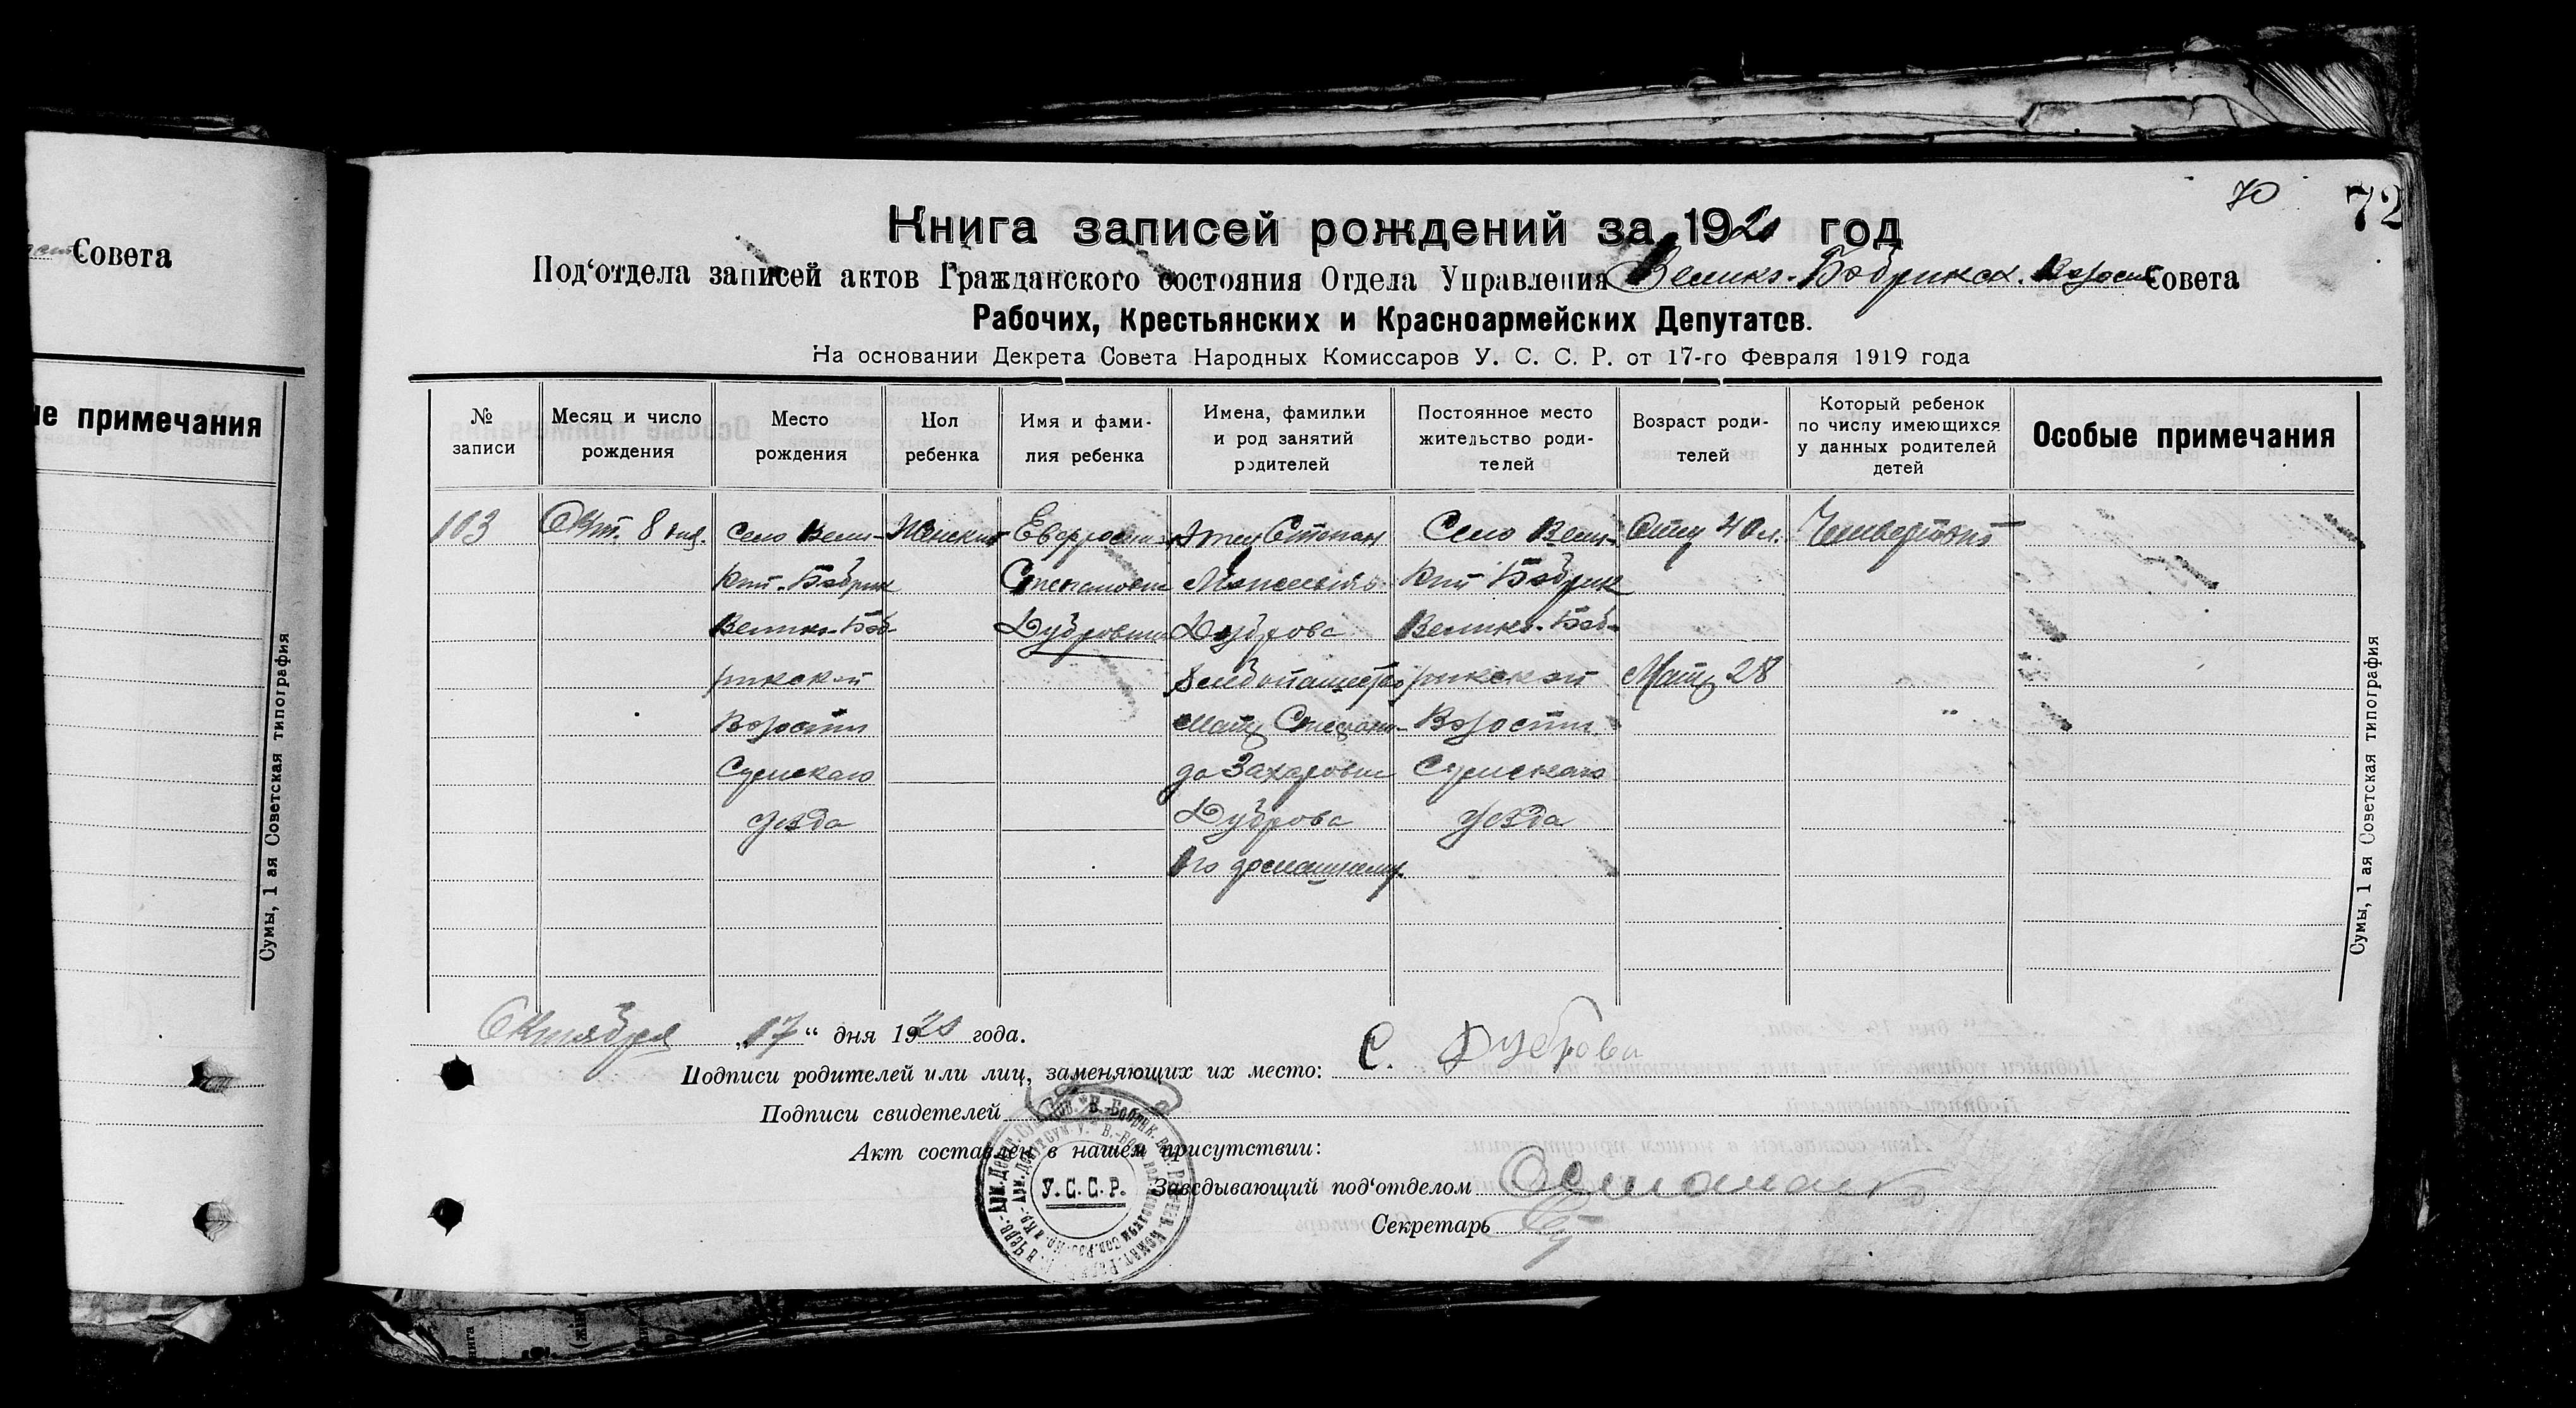 Совета
ые примечания
Сумы, 1 ая Советская типография
70
72
Книга записей рождений за 1920 год
Под‘отдела записей актов Гражданского состояния Отдела Управления Велико-Бобрикск. Волост Совета
Рабочих, Крестьянских и Красноармейских Депутатов.
На основании Декрета Совета Народных Комиссаров У. С. С. Р. от 17-го Февраля 1919 года
№ записи
Месяц и число рождения
Место рождения
Пол ребенка
Имя и фами-
лия ребенка
Имена, фамилии
и род занятий
родителей
Постоянное место
жительство роди-
телей
Возраст роди-
телей
Который ребенок
по числу имеющихся
у данных родителей
детей
Особые примечания
103
Окт. 8 дня.
Село Вели-
кий-Бобрик
Велико-Боб-
рикской
Волости
Сумскаго
уезда
Женский
Евфросин
Степановна
Дуброва
Отец Степан
Дуброва
Хлебопашество
Мать Степани-
да Захаровна
Дуброва
по домашнему
Село Вели-
кий Бобрик
Велико-Боб-
рикской
Волости
Сумскаго
уезда
Отцу 40 л.
Мать 28
Четвертый
Октября „17“ дня 1920 года.
Подписи родителей или лиц, заменяющих их место: С. Дуброва
Подписи свидетелей
Акт составлен в нашем присутствии:
У. С. С. Р.
Заведывающий под‘отделом
Секретарь
Сумы, 1 ая Советская типография